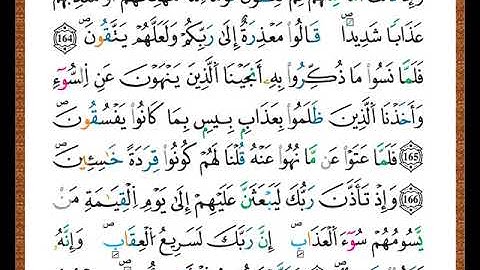 عَذَابًا شَدِيدًا قَالُوا مَعْذِرَةٌ إِلَىٰ رَبِّكُمْ وَلَعَلَّهُمْ يَتَّقُونَ 164
فَلَمَّا نَسُوا مَا ذُكِّرُوا بِهِ أَنجَيْنَا الَّذِينَ يَنْهَوْنَ عَنِ السُّوءِ
وَأَخَذْنَا الَّذِينَ ظَلَمُوا بِعَذَابٍ بِيسٍ بِمَا كَانُوا يَفْسُقُونَ
165 فَلَمَّا عَتَوْا عَن مَّا نُهُوا عَنْهُ قُلْنَا لَهُمْ كُونُوا قِرَدَةً خَٰسِـِٔينَ
166 وَإِذْ تَأَذَّنَ رَبُّكَ لَيَبْعَثَنَّ عَلَيْهِمْ إِلَىٰ يَوْمِ الْقِيَٰمَةِ مَنْ
يَسُومُهُمْ سُوءَ الْعَذَابِ إِنَّ رَبَّكَ لَسَرِيعُ الْعِقَابِ وَإِنَّهُ